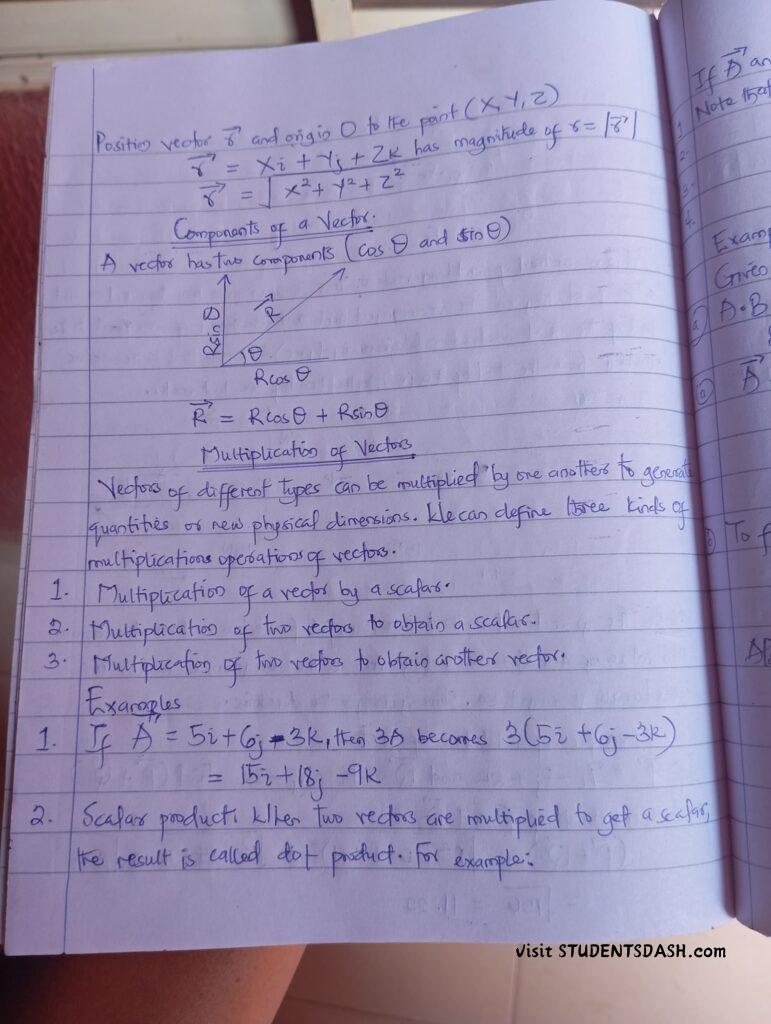 Position vector r→ and origin O to the point (X, Y, Z)
r→ = Xi + Yj + Zk has magnitude of r = |r→|
r→ = √x² + Y² + Z²
Components of a Vector.
A vector has two components (cos θ and sin θ)
Rsin θ
R→
θ
Rcos θ
R→ = Rcosθ + Rsinθ
Multiplication of Vectors
Vectors of different types can be multiplied by one another to generate
quantities of new physical dimensions. We can define three kinds of
multiplications operations of vectors.
1. Multiplication of a vector by a scalar.
2. Multiplication of two vectors to obtain a scalar.
3. Multiplication of two vectors to obtain another vector.
Examples
1. If A→ = 5i + 6j - 3k, then 3A becomes 3(5i + 6j - 3k)
= 15i + 18j - 9k
2. Scalar product: When two vectors are multiplied to get a scalar,
the result is called dot product. For example:
If A→ an
Note that
1.
2.
3.
4.
Examp
Given
a) A·B
A→
To f
Visit STUDENTSDASH.com